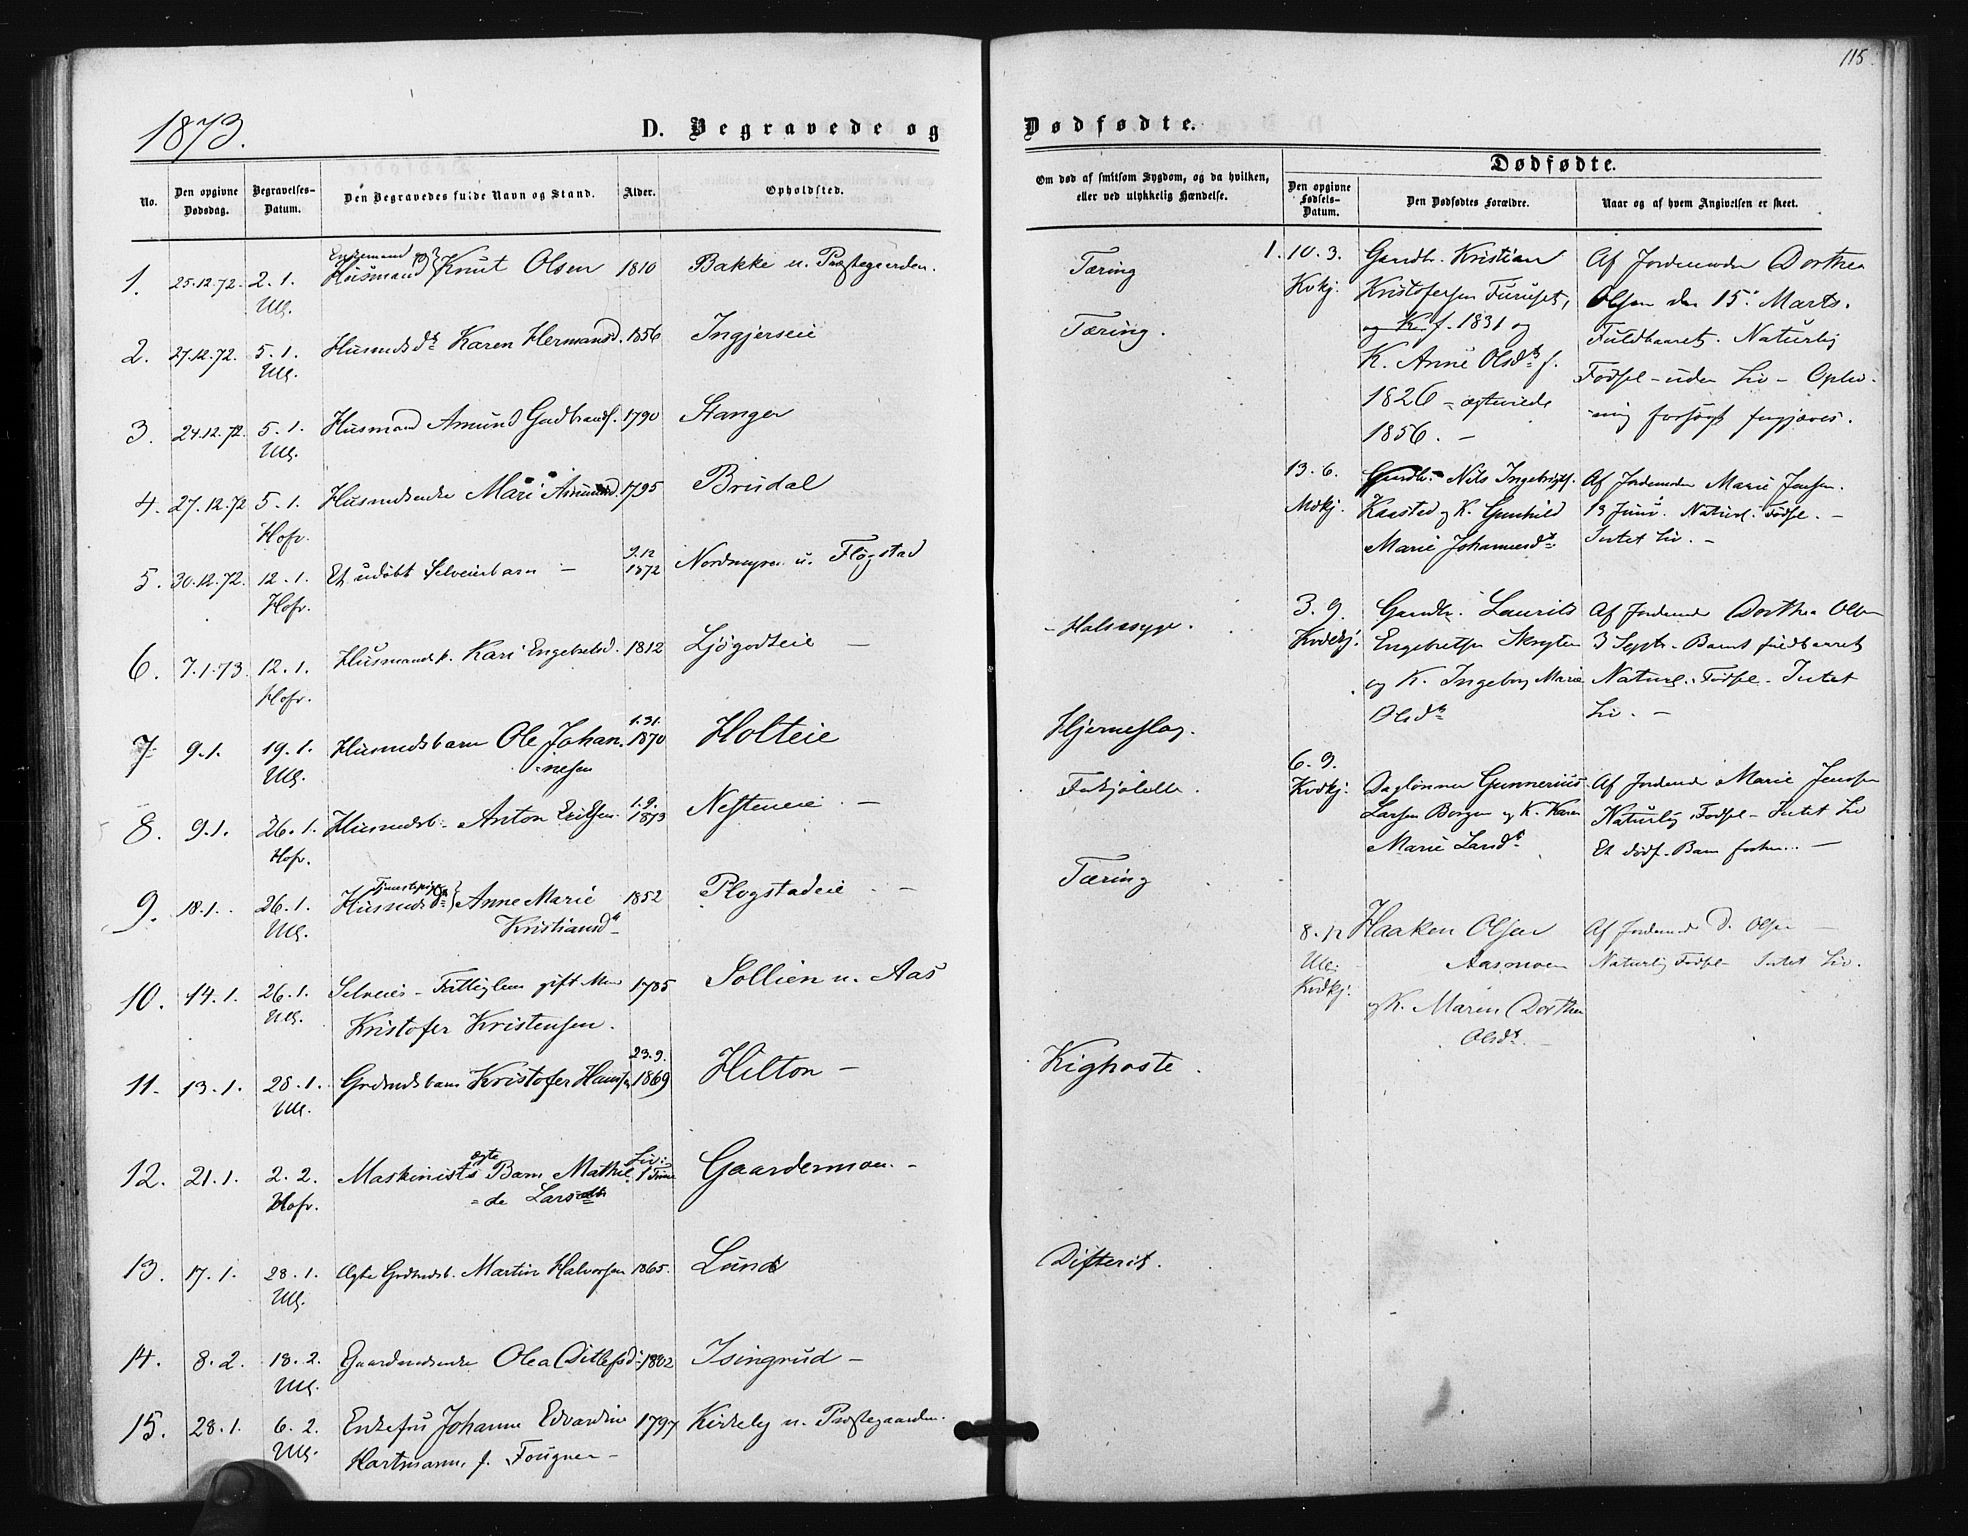 115.
1873.
D. Begravede og Dødfødte.
No.
Den opgivne Dødsdag.
Begravelses-Datum.
Den Begravedes fulde Navn og Stand.
Alder.
Opholdsted.
Om død af smitsom Sygdom, og da hvilken, eller ved ulykkelig Hændelse.
Dødfødte.
Den opgivne Fødsels-Datum.
Den Dødfødtes Forældre.
Naar og af hvem Angivelsen er skeet.
Enkemand og
1. 25.12.72. 2.1. Husmand Knut Olsen 1810 Bakke u. Præstegaarden. Tæring
Ull.
2. 27.12.72. 5.1. Husmdsdt Karen Hermansd. 1856 Ingjerseie Tæring.
Ull.
3. 24.12.72. 5.1. Husmand Amund Gudbrands. 1790 Stanger
Ull.
4. 27.12.72 5.1. Husmdsenke Mari Amund 1795 Brudal
Hofv.
9.12
5. 30.12.72. 12.1. Et udøbt Selveierbarn – 1872 Nordmyren u. Flogstad
Hofv.
6. 7.1.73. 12.1. Husmandsk. Kari Engebretsd. 1812 Ljøgodteie – Halssyge.
Hofv.
1.31.
7. 9.1. 19.1. Husmdsbarn Ole Johan= 1870 Holteie Hjerneslag.
Ull. =nesen
1.9.
8. 9.1. 26.1. Husmdsb. Anton Eriksen 1873 Nesteneie – 
Hofv.
Tjenestepige og
9. 18.1. 26.1. Husmdsdt Anne Marie 1852 Plogstadeie – Tæring
Ull. Kristiansdt
10. 14.1. 26.1. Selveier – Fattiglem gift Man 1785 Sollien u. Aas
Ull. Kristofer Kristensen.
23.9.
11. 13.1. 28.1. Grdmdsbarn Kristofer Hansen 1869 Hilton – Kighoste.
Ull.
ægte Liv:
12. 21.1. 2.2. Maskinists Barn Mathil= 1 Time Gaardermoen. –
Hofv. =de Lars
13. 17.1. 28.1. Ægte Grdmdsb. Martin Halvorsen 1865. Lund Difterit.
Ull.
14. 8.2. 18.2. Gaardmdsenke Olea Ditlefsd 1802 Isingrud –
Ull.
15. 28.1. 6.2. Enkefru Johanne Edvardine 1797 Kirkeby u. Præstegaarden.
Ull. Hartmann, f. Fougner –
1. 10.3. Gaardbr. Kristian
Kvkj. Kristofersen Furuset,
f. 1831 og
K. Anne Olsdt f.
1826 – ægteviede
1856. –
Af Jordemoder Dorthea
Olsen den 15. Marts.
Fuldbaaret. Naturlig
Fødsel – uden Liv – Opliv=
=ning forsøgt forgjæves.
13.6. Gaardbr. Nils Ingebrigts.
Mdkj. Kaasted og K. Gunhild
Marie Johannesdt
Af Jordemoder Marie Jensen.
13 Juni. Naturl. Fødsel. –
Intet Liv. –
3.9. Gaardbr. Laurits
Kvdekj. Engebretsen Skryten
og K. Ingeborg Marie
Olsdt
Af Jordemod Dorthea Olsen
3 Septr. Barnet fuldbaaret
Naturl. Fødsel – Intet
Liv. –
6.9.
Kvdkj. Daglønner Gunnerius
Larsen Borgen og K. Karen
Marie Larsdt
Af Jordemod Marie Jensen
Naturlig Fødsel – Intet Liv
Et dødf. Barn –
8.12 Haaken Olsen
Ull. Aasmoen
Kvdkj.
og K. Maren Dorthea
Olsdt. –
Af Jordemod D. Olsen –
Naturlig Fødsel – Intet Liv.